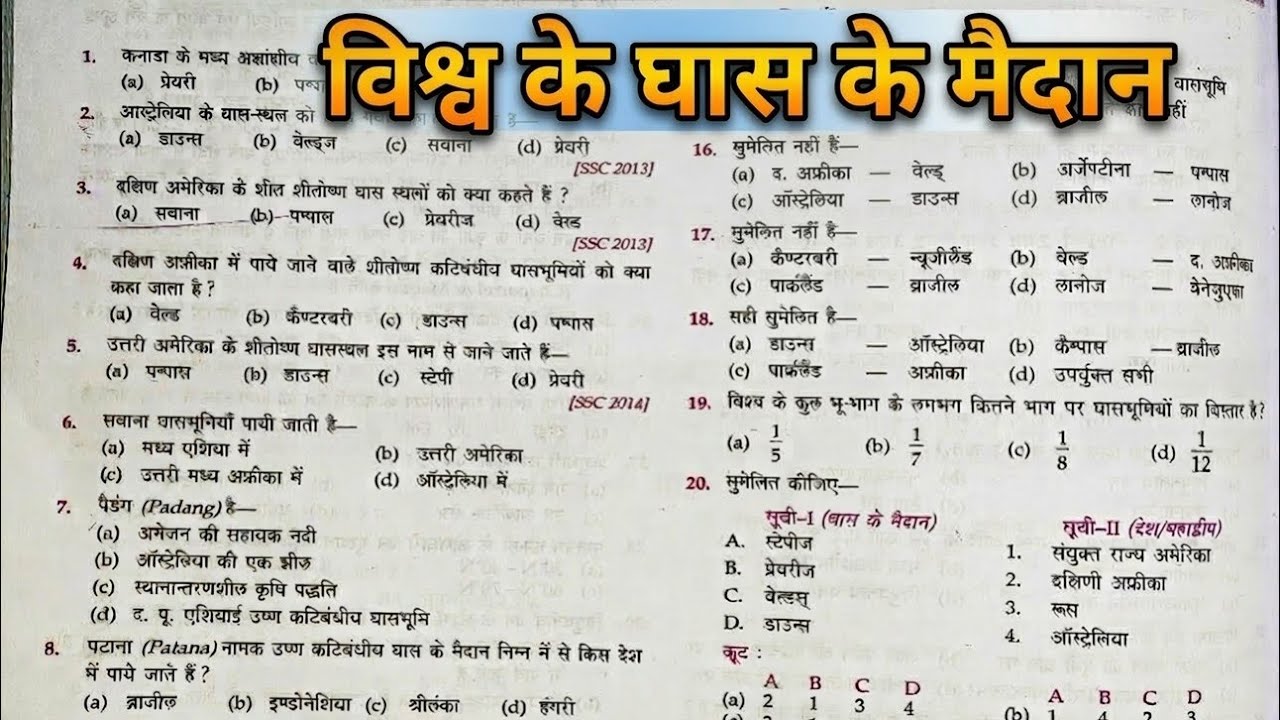 विश्व के घास के मैदान
1. कनाडा के मध्य अक्षांशीय
(a) प्रेयरी (b)
2. आस्ट्रेलिया के घास-स्थल को
(a) डाउन्स (b) वेल्ड्ज (c) सवाना (d) प्रेवरी
[SSC 2013]
3. दक्षिण अमेरिका के शीत शीतोष्ण घास स्थलों को क्या कहते हैं ?
(a) सवाना (b) पम्पास (c) प्रेयरीज (d) वेल्ड
[SSC 2013]
4. दक्षिण अफ्रीका में पाये जाने वाले शीतोष्ण कटिबंधीय घासभूमियों को क्या
कहा जाता है ?
(a) वेल्ड (b) कैण्टरबरी (c) डाउन्स (d) पम्पास
5. उत्तरी अमेरिका के शीतोष्ण घासस्थल इस नाम से जाने जाते हैं—
(a) पम्पास (b) डाउन्स (c) स्टेपी (d) प्रेयरी
[SSC 2014]
6. सवाना घासभूमियाँ पायी जाती है—
(a) मध्य एशिया में (b) उत्तरी अमेरिका
(c) उत्तरी मध्य अफ्रीका में (d) ऑस्ट्रेलिया में
7. पैडंग (Padang) है—
(a) अमेजन की सहायक नदी
(b) ऑस्ट्रेलिया की एक झील
(c) स्थानान्तरणशील कृषि पद्धति
(d) द. पू. एशियाई उष्ण कटिबंधीय घासभूमि
8. पटाना (Patana) नामक उष्ण कटिबंधीय घास के मैदान निम्न में से किस देश
में पाये जाते हैं ?
(a) ब्राजील (b) इण्डोनेशिया (c) श्रीलंका (d) हंगरी
घासभूमि
नहीं
16. सुमेलित नहीं है—
(a) द. अफ्रीका — वेल्ड् (b) अर्जेण्टीना — पम्पास
(c) ऑस्ट्रेलिया — डाउन्स (d) ब्राजील — लानोज
17. सुमेलित नहीं है—
(a) कैण्टरबरी — न्यूजीलैंड (b) वेल्ड — द. अफ्रीका
(c) पार्कलैंड — ब्राजील (d) लानोज — वेनेजुएला
18. सही सुमेलित है—
(a) डाउन्स — ऑस्ट्रेलिया (b) कैम्पास — ब्राजील
(c) पार्कलैंड — अफ्रीका (d) उपर्युक्त सभी
19. विश्व के कुल भू-भाग के लगभग कितने भाग पर घासभूमियों का विस्तार है?
(a) 1/5 (b) 1/7 (c) 1/8 (d) 1/12
20. सुमेलित कीजिए—
सूची-I (घास के मैदान) सूची-II (देश/महाद्वीप)
A. स्टेपीज 1. संयुक्त राज्य अमेरिका
B. प्रेयरीज 2. दक्षिणी अफ्रीका
C. वेल्डस् 3. रूस
D. डाउन्स 4. ऑस्ट्रेलिया
कूट :
A B C D A B C D
(a) 2 1 3 4 (b) 1 4 2 3